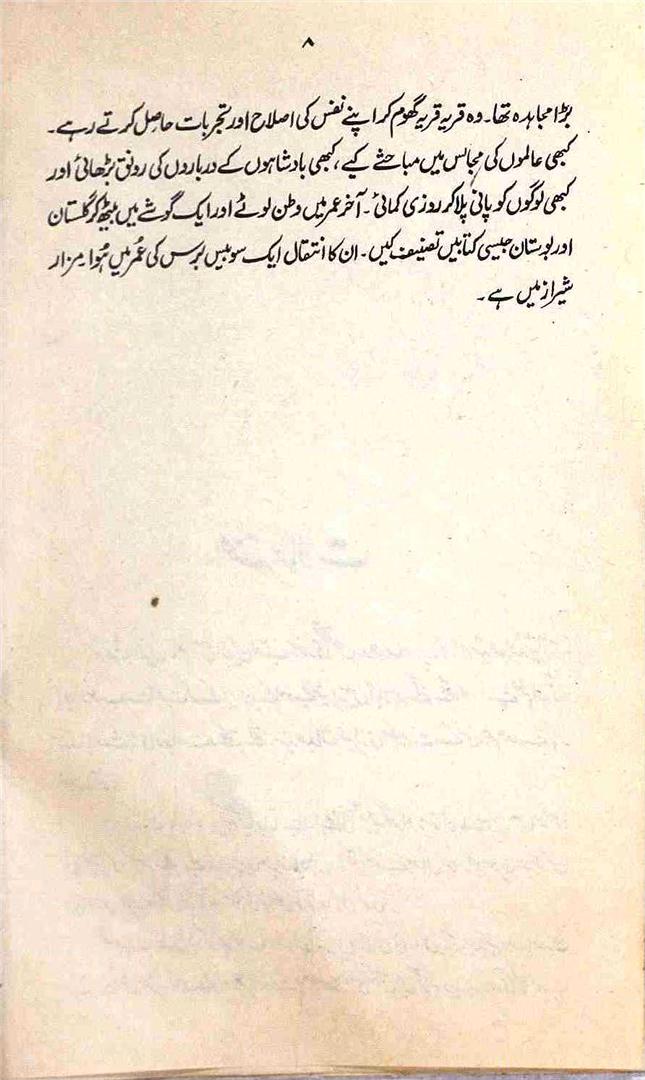 ۸
بڑا مجاہدہ تھا۔ وہ قریہ قریہ گھوم کر اپنے نفس کی اصلاح اور تجربات حاصل کرتے رہے۔
کبھی عالموں کی مجالس میں مباحثے کیے، کبھی بادشاہوں کے درباروں کی رونق بڑھائی اور
کبھی لوگوں کو پانی پلا کر روزی کمائی۔ آخر عمر میں وطن لوٹے اور ایک گوشے میں بیٹھ کر گلستان
اور بوستان جیسی کتابیں تصنیف کیں۔ ان کا انتقال ایک سو بیس برس کی عُمر میں ہُوا۔ مزار
شیراز میں ہے۔